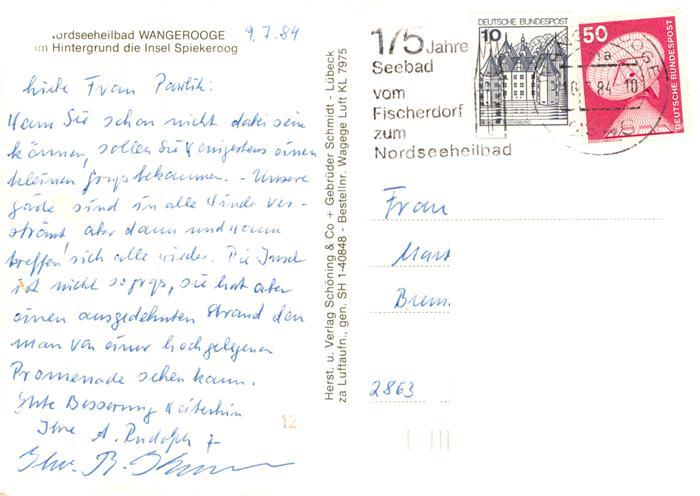 ordseeheilbad WANGEROOGE
im Hintergrund die Insel Spiekeroog
9.7.84
Liebe Frau
Wenn Sie schon nicht dabei sein
können, sollen Sie wenigstens einen
kleinen bekommen. - Unsere
Gäste sind in alle Winde ver-
streut aber dann und wann
treffen sich alle wieder. Die Insel
ist nicht so groß, sie hat aber
einen ausgedehnten Strand den
man von einer hochgelegenen
Promenade sehen kann.
Gute Besserung weiterhin
Ihre A. Rudolph
Ihr
12
Herst. u. Verlag Schöning & Co + Gebrüder Schmidt - Lübeck
za Luftaufn., gen. SH 1-40848 - Bestellnr. Wagege Luft KL 7975
175 Jahre
Seebad
vom
Fischerdorf
zum
Nordseeheilbad
DEUTSCHE BUNDESPOST
10
50
DEUTSCHE BUNDESPOST
84 10
Frau
Mart
Brem
2863